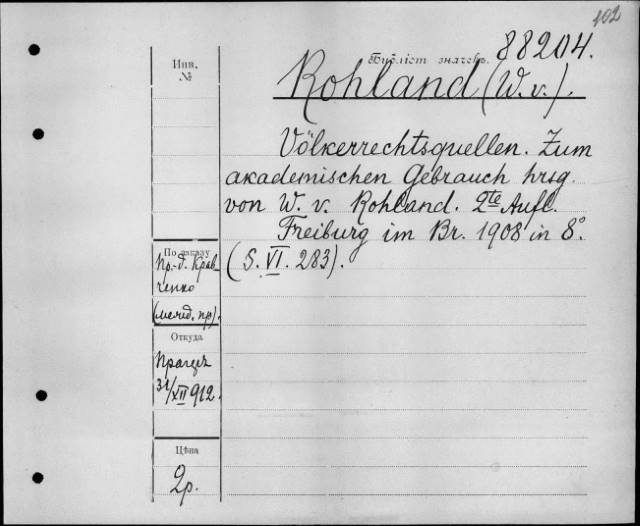 102
88204.
Библіот. значекъ.
Rohland (W. v.).
Инв.
№
Völkerrechtsquellen. Zum
akademischen Gebrauch hrsg.
von W. v. Rohland. 2te Aufl.
Freiburg im Br. 1908 in 8°.
(S. VI. 283).
По заказу
Пр.-д. Крав-
ченко
(межд. пр).
Откуда
31/XII 912.
Цѣна
2р.